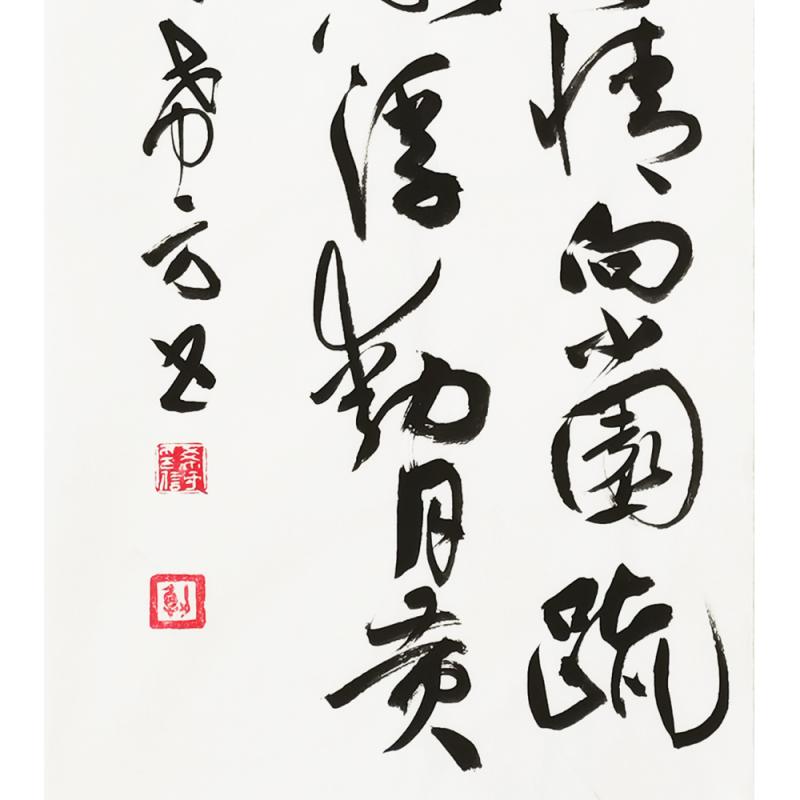 情向小園疏
浮動月黄
希方书